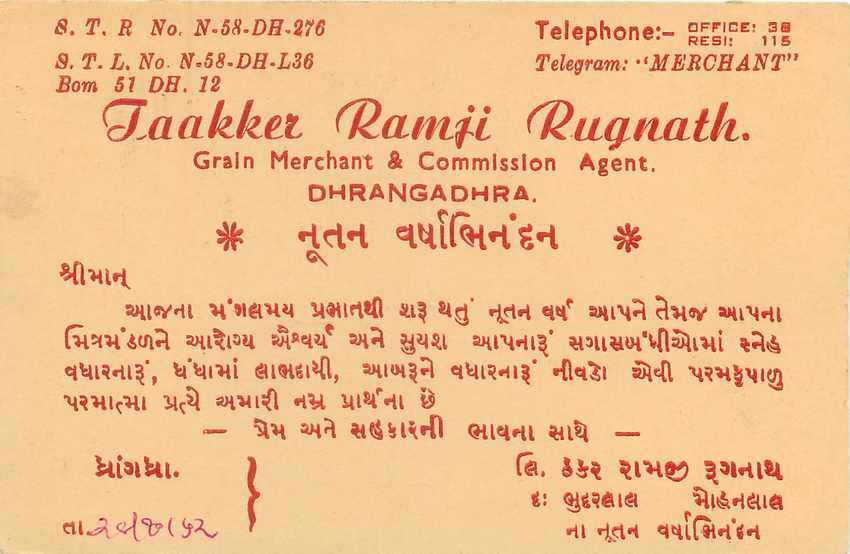 S. T. R No. N-58-DH-276
Telephone:- OFFICE: 38
RESI: 115
S. T. L. No. N-58-DH-L36
Telegram: "MERCHANT"
Bom 51 DH. 12
Taakker Ramji Rugnath.
Grain Merchant & Commission Agent.
DHRANGADHRA.
* નૂતન વર્ષાભિનંદન *
શ્રીમાન્
આજના મંગલમય પ્રભાતથી શરૂ થતું નૂતન વર્ષ આપને તેમજ આપના
મિત્રમંડળને આરોગ્ય ઐશ્વર્ય અને સુયશ આપનારૂં સગાસબંધીઓમાં સ્નેહ
વધારનારૂં, ધંધામાં લાભદાયી, આબરૂને વધારનારૂં નીવડો એવી પરમકૃપાળુ
પરમાત્મા પ્રત્યે અમારી નમ્ર પ્રાર્થના છે
— પ્રેમ અને સહકારની ભાવના સાથે —
ધ્રાંગધ્રા.
લિ. ઠક્કર રામજી રૂગનાથ
દઃ ભુદરલાલ મોહનલાલ
તા.
ના નૂતન વર્ષાભિનંદન